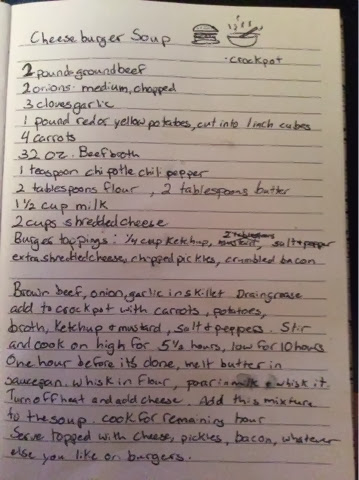 Cheeseburger Soup
· crockpot
2 pounds ground beef
2 onions - medium, chopped
3 cloves garlic
1 pound red or yellow potatoes, cut into 1 inch cubes
4 carrots
32 oz. Beef broth
1 teaspoon chipotle chili pepper
2 tablespoons flour , 2 tablespoons butter
1 1/2 cup milk
2 cups shredded cheese
Burger toppings: 1/4 cup ketchup, 2 tablespoons mustard, salt & pepper
extra shredded cheese, chopped pickles, crumbled bacon
Brown beef, onion, garlic in skillet Drain grease
add to crockpot with carrots, potatoes,
broth, ketchup & mustard, salt & peppers. Stir
and cook on high for 5 1/2 hours, low for 10 hours
One hour before its done, melt butter in
saucepan. Whisk in flour, pour in milk & whisk it.
Turn off heat and add cheese. Add this mixture
to the soup. cook for remaining hour
Serve topped with cheese, pickles, bacon, whatever
else you like on burgers.